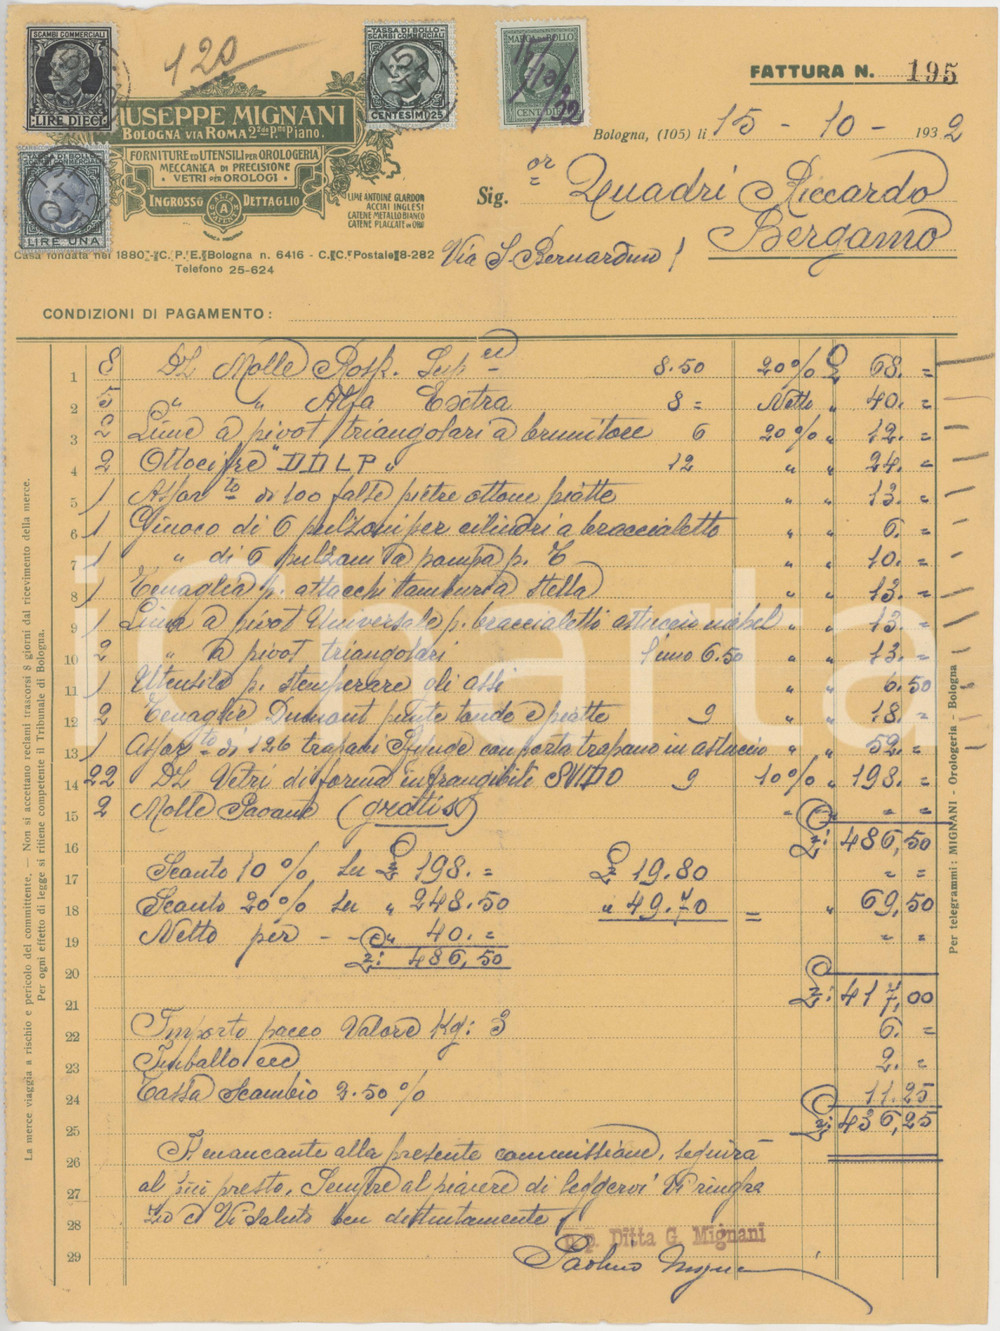 SCAMBI COMMERCIALI
LIRE DIECI
120
TASSA DI BOLLO
SCAMBI COMMERCIALI
CENTESIMI 25
MARCA DA BOLLO
LIRE UNA
FATTURA N. 195
GIUSEPPE MIGNANI
BOLOGNA VIA ROMA 2
Piano.
FORNITURE ED UTENSILI PER OROLOGERIA
MECCANICA DI PRECISIONE
VETRI PER OROLOGI
INGROSSO DETTAGLIO
LIME ANTOINE GLARDON
ACCIAI INGLESI
CATENE METALLO BIANCO
CATENE PLACCATE IN ORO
Casa fondata nel 1880 - C. P. E. Bologna n. 6416 - C. C. Postale 8-282
Telefono 25-624
Bologna, (105) li 15 - 10 - 1932
Sig. or Quadri Riccardo
Bergamo
Via S. Bernardino
CONDIZIONI DI PAGAMENTO:
1 8 DZ Molle Rosk. Sup 8.50 20% £ 68. =
2 5 " " Alfa Extra 8 = Netto " 40. =
3 2 Lime a pivot triangolari a brunitore 6 20% " 12. =
4 2 Ottocifre "DDLP" 12 " " 24. =
5 1 Assorto di 100 false pietre ottone piatte " " 13. =
6 1 Giuoco di 6 pulzoni per cilindri a braccialetto " " 6. =
7 1 " di 6 pulzoni a pompa p. " " 10. =
8 1 Tenaglia p. attacchi tamburo a stella " " 13. =
9 1 Lime a pivot Universale p. braccialetti astuccio nichel " " 13. =
10 2 " a pivot triangolari l'uno 6.50 " " 13. =
11 1 Utensile p. stemperare gli assi " " 6.50
12 2 Tenaglie Dumont punte tondo e piatte 9 " " 18. =
13 1 Assorto di 126 trapani con porta trapano in astuccio " " 52. =
14 22 DZ Vetri di forma infrangibili SVIDO 9 10% " 198. =
15 2 Molle (gratis) " = =
16 £: 486,50
17 Sconto 10% su £ 198. = £ 19.80 = =
18 Sconto 20% su " 248.50 " 49.70 = " 69,50
19 Netto per - - " 40. = = =
20 £: 486,50
21 £: 417,00
22 Importo pacco Valore Kg: 3 6. =
23 Imballo ecc 2. =
24 Tassa Scambio 2.50% 11.25
25 £: 436,25
26 Rimancante alla presente commissione, seguirà
27 al più presto. Sempre al piacere di leggervi Vi ringra
28 zio e Vi saluto ben distintamente
29 p. p. Ditta G. Mignani
La merce viaggia a rischio e pericolo del committente. — Non si accettano reclami trascorsi 8 giorni dal ricevimento della merce.
Per ogni effetto di legge si ritiene competente il Tribunale di Bologna.
Per telegrammi: MIGNANI - Orologeria - Bologna
iCharta